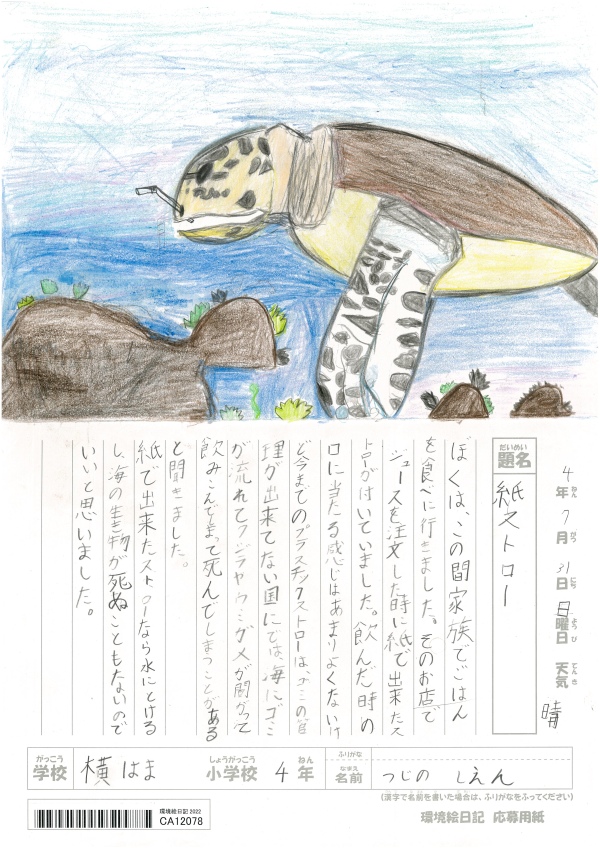 4年7月31日日曜日 天気 晴
ねん がつ にち ようび てんき
だいめい
題名
紙ストロー
ぼくは、この間家族でごはん
を食べに行きました。そのお店で
ジュースを注文した時に紙で出来たス
トローが付いていました。飲んだ時の
口に当たる感じはあまりよくないけ
ど今までのプラスチックストローは、ゴミの管
理が出来てない国にでは、海にゴミ
が流れてクジラやウミガメが間がって
飲みこんでしまって死んでしまうことがある
と聞きました。
紙で出来たストローなら水にとける
し、海の生き物が死ぬこともないので
いいと思いました。
がっこう
学校
横はま
しょうがっこう
小学校
4年
ねん
ふりがな
なまえ
名前
つじの しえん
(漢字で名前を書いた場合は、ふりがなをふってください)
環境絵日記 2022
CA12078
環境絵日記 応募用紙